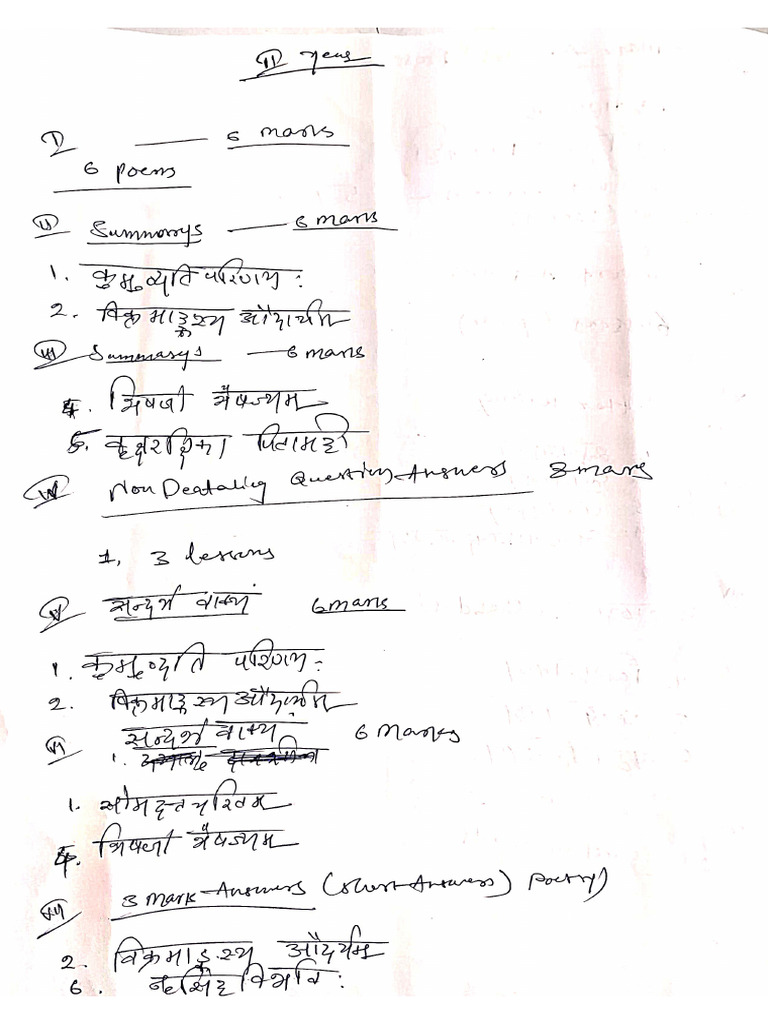 II year
I — 6 marks
6 poems
II Summarys — 6 marks
1. कुमुद्वति परिणय:
2. विक्रमाङ्कस्य औदार्यम्
III Summarys — 6 marks
4. भिषजो भैषज्यम्
5. वृक्षरक्षिका पितामही
IV Non Deataling Question-Answers 8 marks
1, 3 lessons
V सन्दर्भ वाक्यं 6 marks
1. कुमुद्वति परिणय:
2. विक्रमाङ्कस्य औदार्यम्
VI सन्दर्भ वाक्य 6 Marks
1.
1. सोमदत्त चरितम्
4. भिषजो भैषज्यम्
VII 3 mark-Answers (short-Answers) poetry)
2. विक्रमाङ्कस्य औदर्यम्
6.